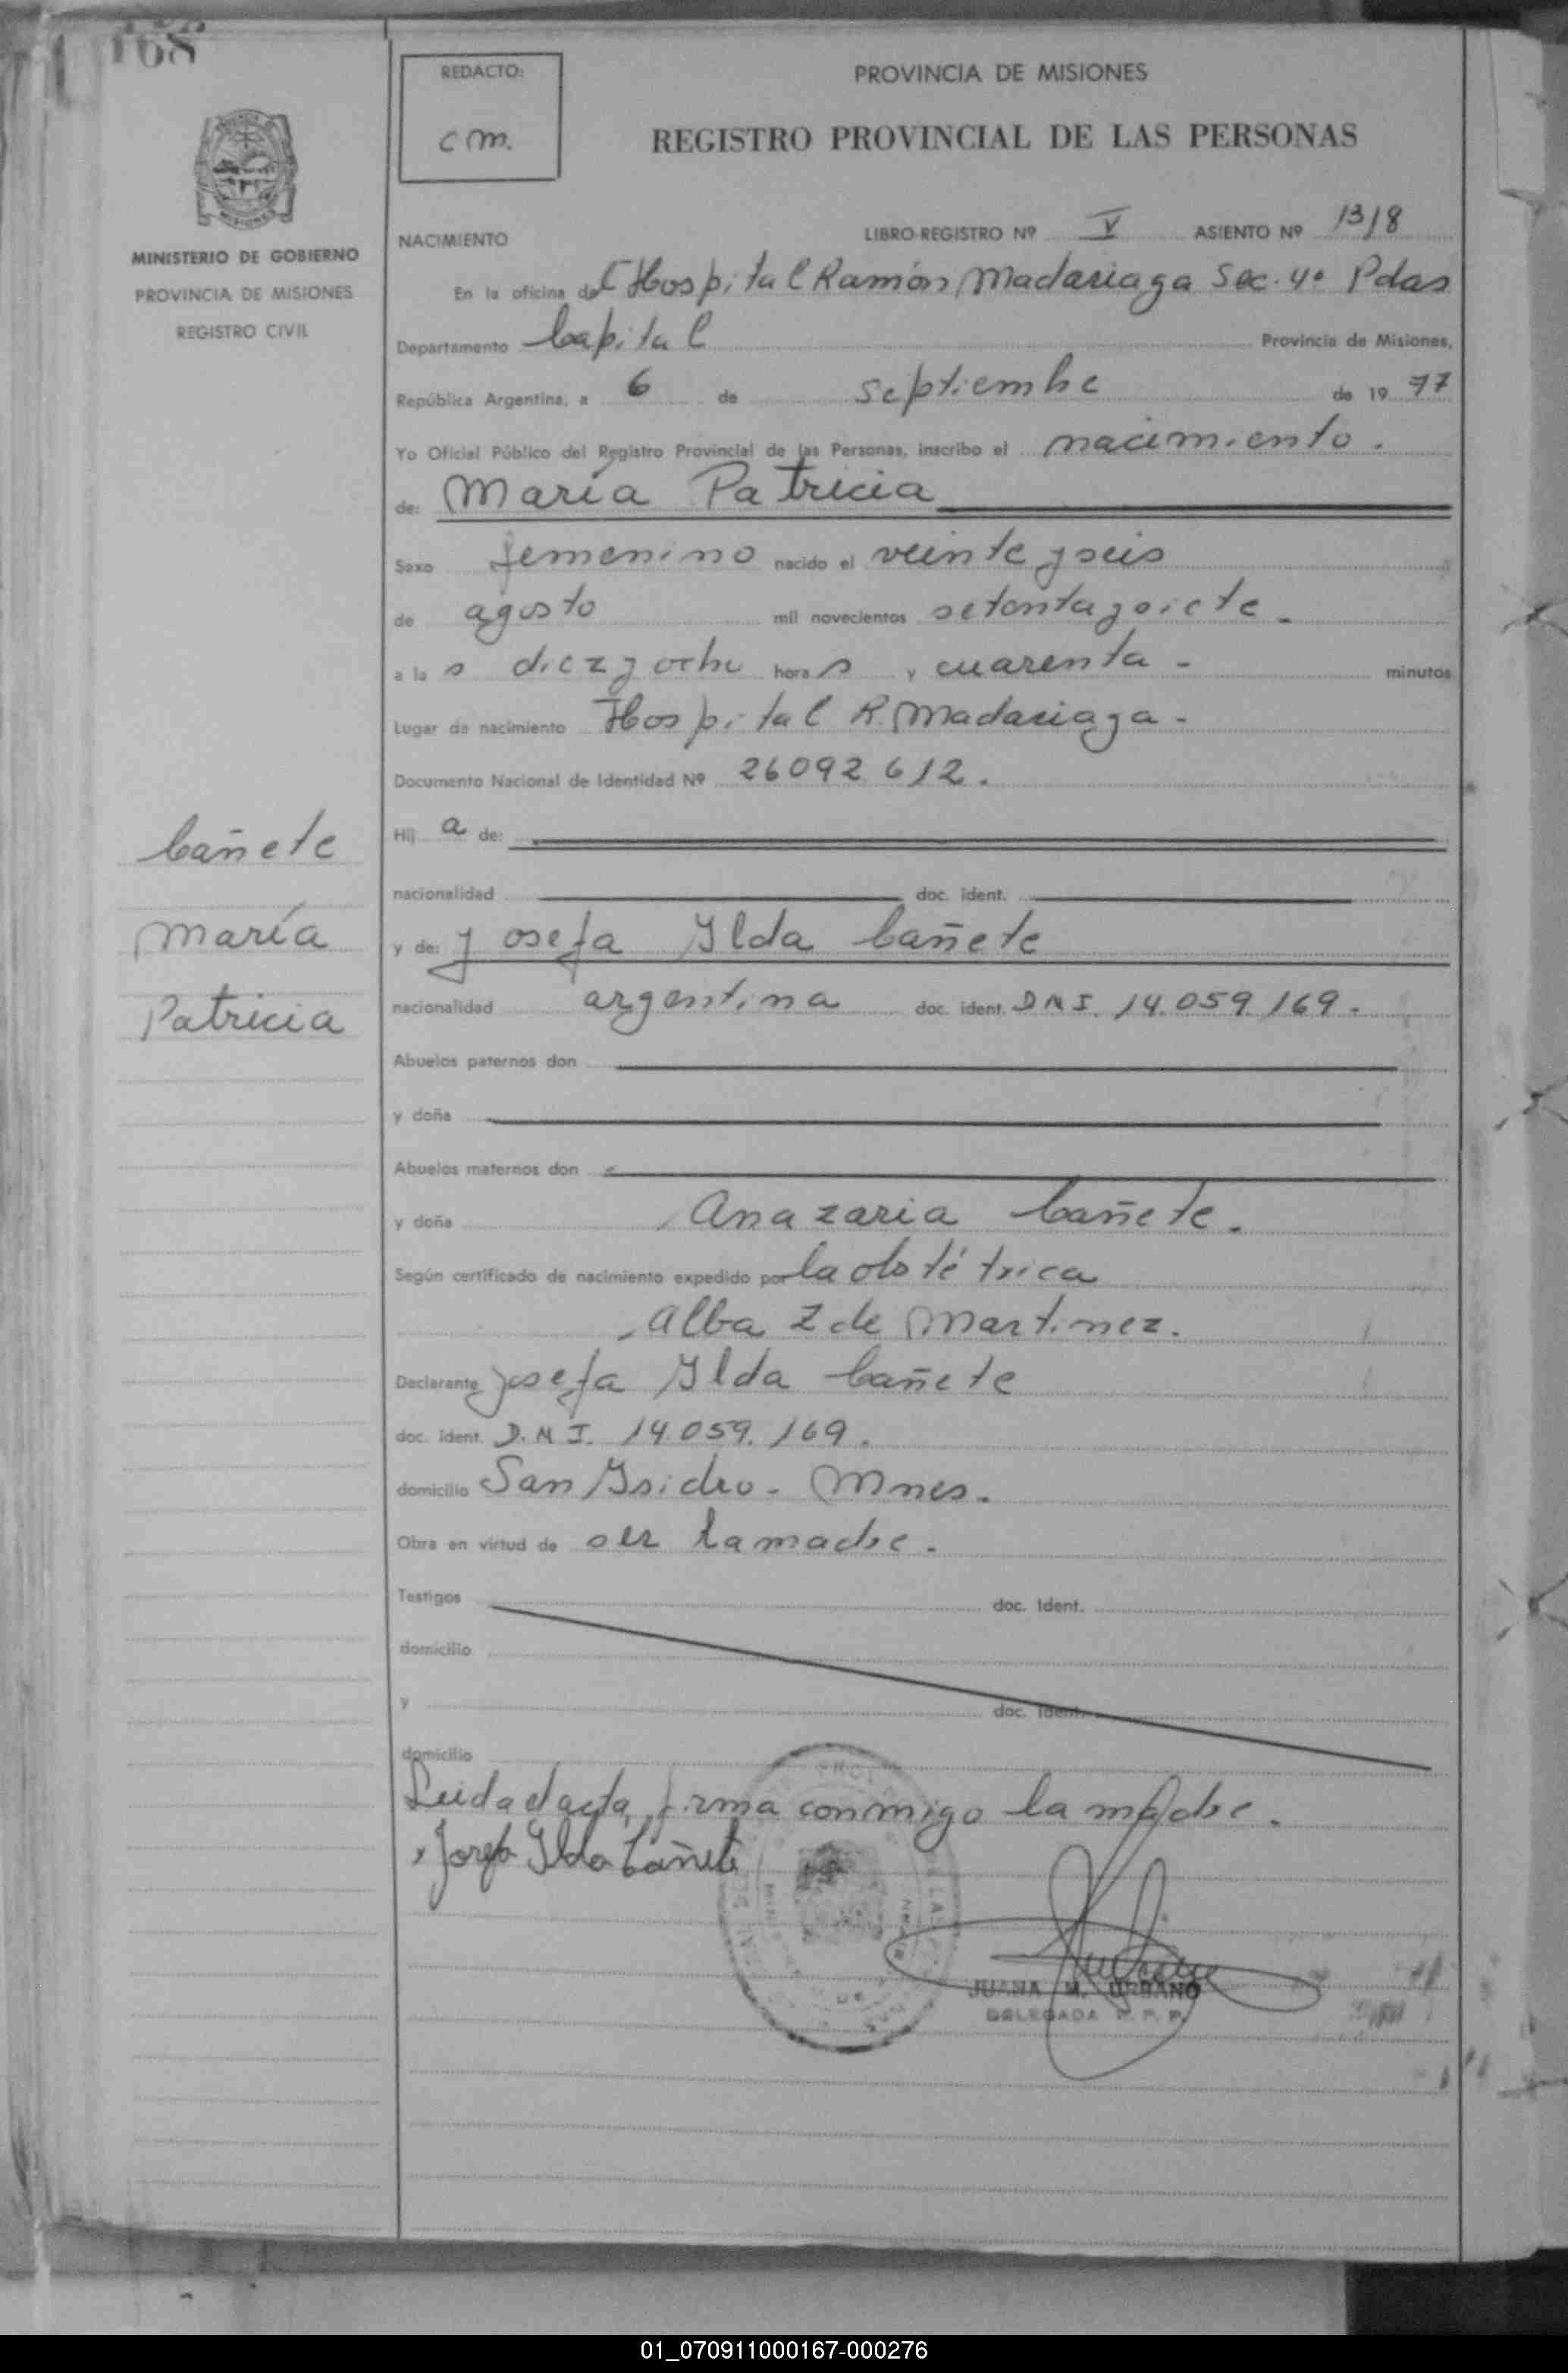 168
MINISTERIO DE GOBIERNO
PROVINCIA DE MISIONES
REGISTRO CIVIL
Cañete
María
Patricia
REDACTO:
C m.
PROVINCIA DE MISIONES
REGISTRO PROVINCIAL DE LAS PERSONAS
NACIMIENTO LIBRO-REGISTRO Nº V ASIENTO Nº 1318
En la oficina del Hospital Ramón Madariaga Sec. 4º Pdas
Departamento Capital Provincia de Misiones,
República Argentina, a 6 de septiembre de 19 77
Yo Oficial Público del Registro Provincial de las Personas, inscribo el nacimiento.
de: María Patricia
Sexo femenino nacido el veinte y seis
de agosto mil novecientos setenta y siete.
a la s diez y ocho hora s y cuarenta - minutos
Lugar de nacimiento Hospital R. Madariaga -
Documento Nacional de Identidad Nº 26092.612.
Hij a de:
nacionalidad doc. ident.
y de: Josefa Ilda Cañete
nacionalidad argentina doc. ident. D N I. 14.059.169.
Abuelos paternos don
y doña
Abuelos maternos don
y doña Anazaria Cañete.
Según certificado de nacimiento expedido por la obstétrica
Alba Z de Martinez.
Declarante Josefa Ilda Cañete
doc. ident. D. N I. 14.059.169.
domicilio San Isidro - Mnes.
Obra en virtud de ser la madre.
Testigos doc. Ident.
domicilio
y doc. Ident.
domicilio
Leida el acta, firma conmigo la madre.
Josefa Ilda Cañete
JUANA M. URBANO
DELEGADA R. P. P.
01_070911000167-000276